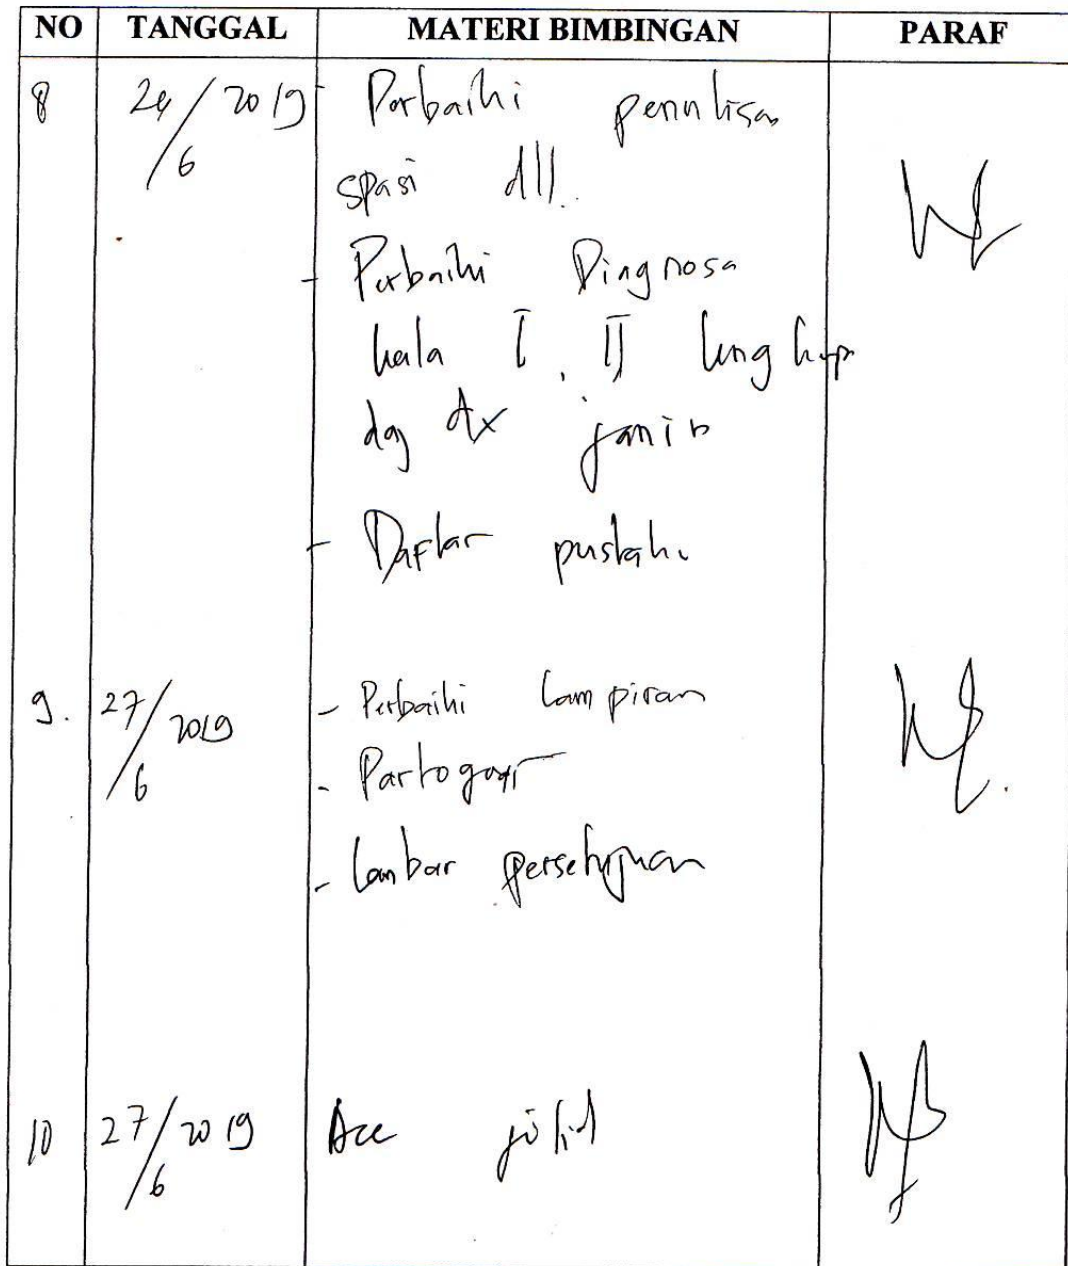 NO TANGGAL MATERI BIMBINGAN PARAF
8 24/6 2019 - Perbaiki penulisan
spasi dll.
- Perbaiki Diagnosa
kala I, II lengkap
dg dx janin
- Daftar pustaka
9. 27/6 2019 - Perbaiki lampiran
- Partograf
- Lembar persetujuan
10 27/6 2019 Acc jilid